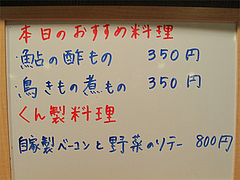 本日のおすすめ料理
鮎の酢もの 350円
鳥きもの煮もの 350円
くん製料理
自家製ベーコンと野菜のソテー 800円